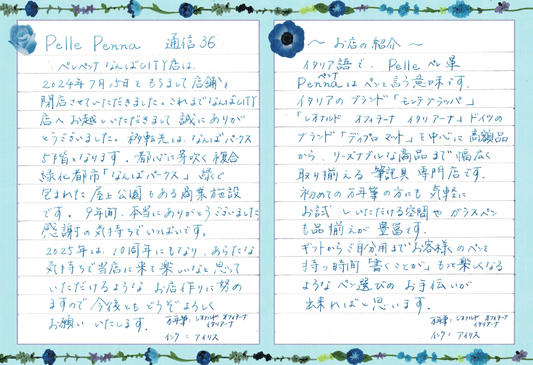 Pelle Penna 通信36
ペレペンナ なんばCITY店は、
2024年7月15日をもちまして店舗を
閉店させていただきました。これまでなんばCITY
店へお越しいただきまして誠にありが
とうございました。移転先は、なんばパークス
5階となります。都心に芽吹く複合
緑化都市「なんばパークス」緑で
包まれた屋上公園もある商業施設
です。9年間、本当にありがとうございました
感謝の気持ちでいっぱいです。
2025年は、10周年にもなり、あらたな
気持ちで当店に来て楽しいなと思って
いただけるような お店作りに努め
ますので今後ともどうぞよろしく
お願いいたします。
万年筆：レオナルド オフィチーナ
イタリアーナ
インク：アイリス
～お店の紹介～
イタリア語で、Pelle ペレ 革
Penna ペンナ はペンと言う意味です。
イタリアのブランド「モンテグラッパ」
「レオナルド オフィチーナ イタリアーナ」ドイツの
ブランド「ディプロマット」を中心に高額品
から、リーズナブルな商品まで幅広く
取り揃える 筆記具専門店です。
初めての万年筆の方にも気軽に
お試しいただける空間やガラスペン
も品揃えが豊富です。
ギフトからご自分用までお客様のペンを
持つ時間「書くことが」もっと楽しくなる
ような ペン選びのお手伝いが
出来ればと思います。
万年筆：レオナルド オフィチーナ
イタリアーナ
インク：アイリス